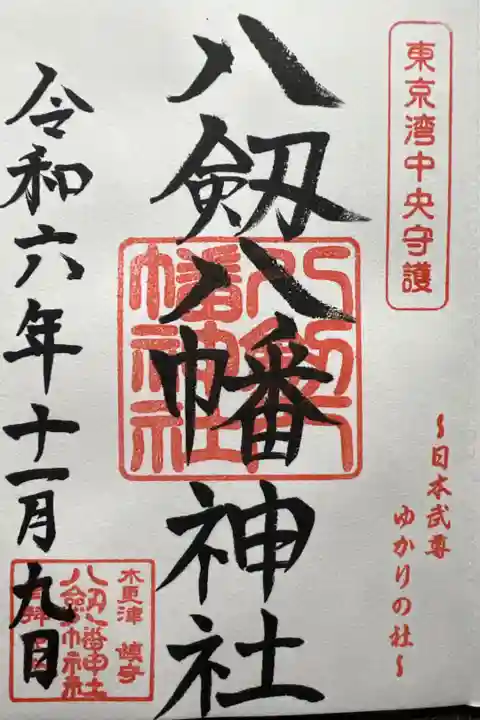 東京湾中央守護
〜日本武尊
ゆかりの社〜
八剱八幡神社
八剱八幡神社
令和六年十一月九日
木更津 鎮守
八剱八幡神社